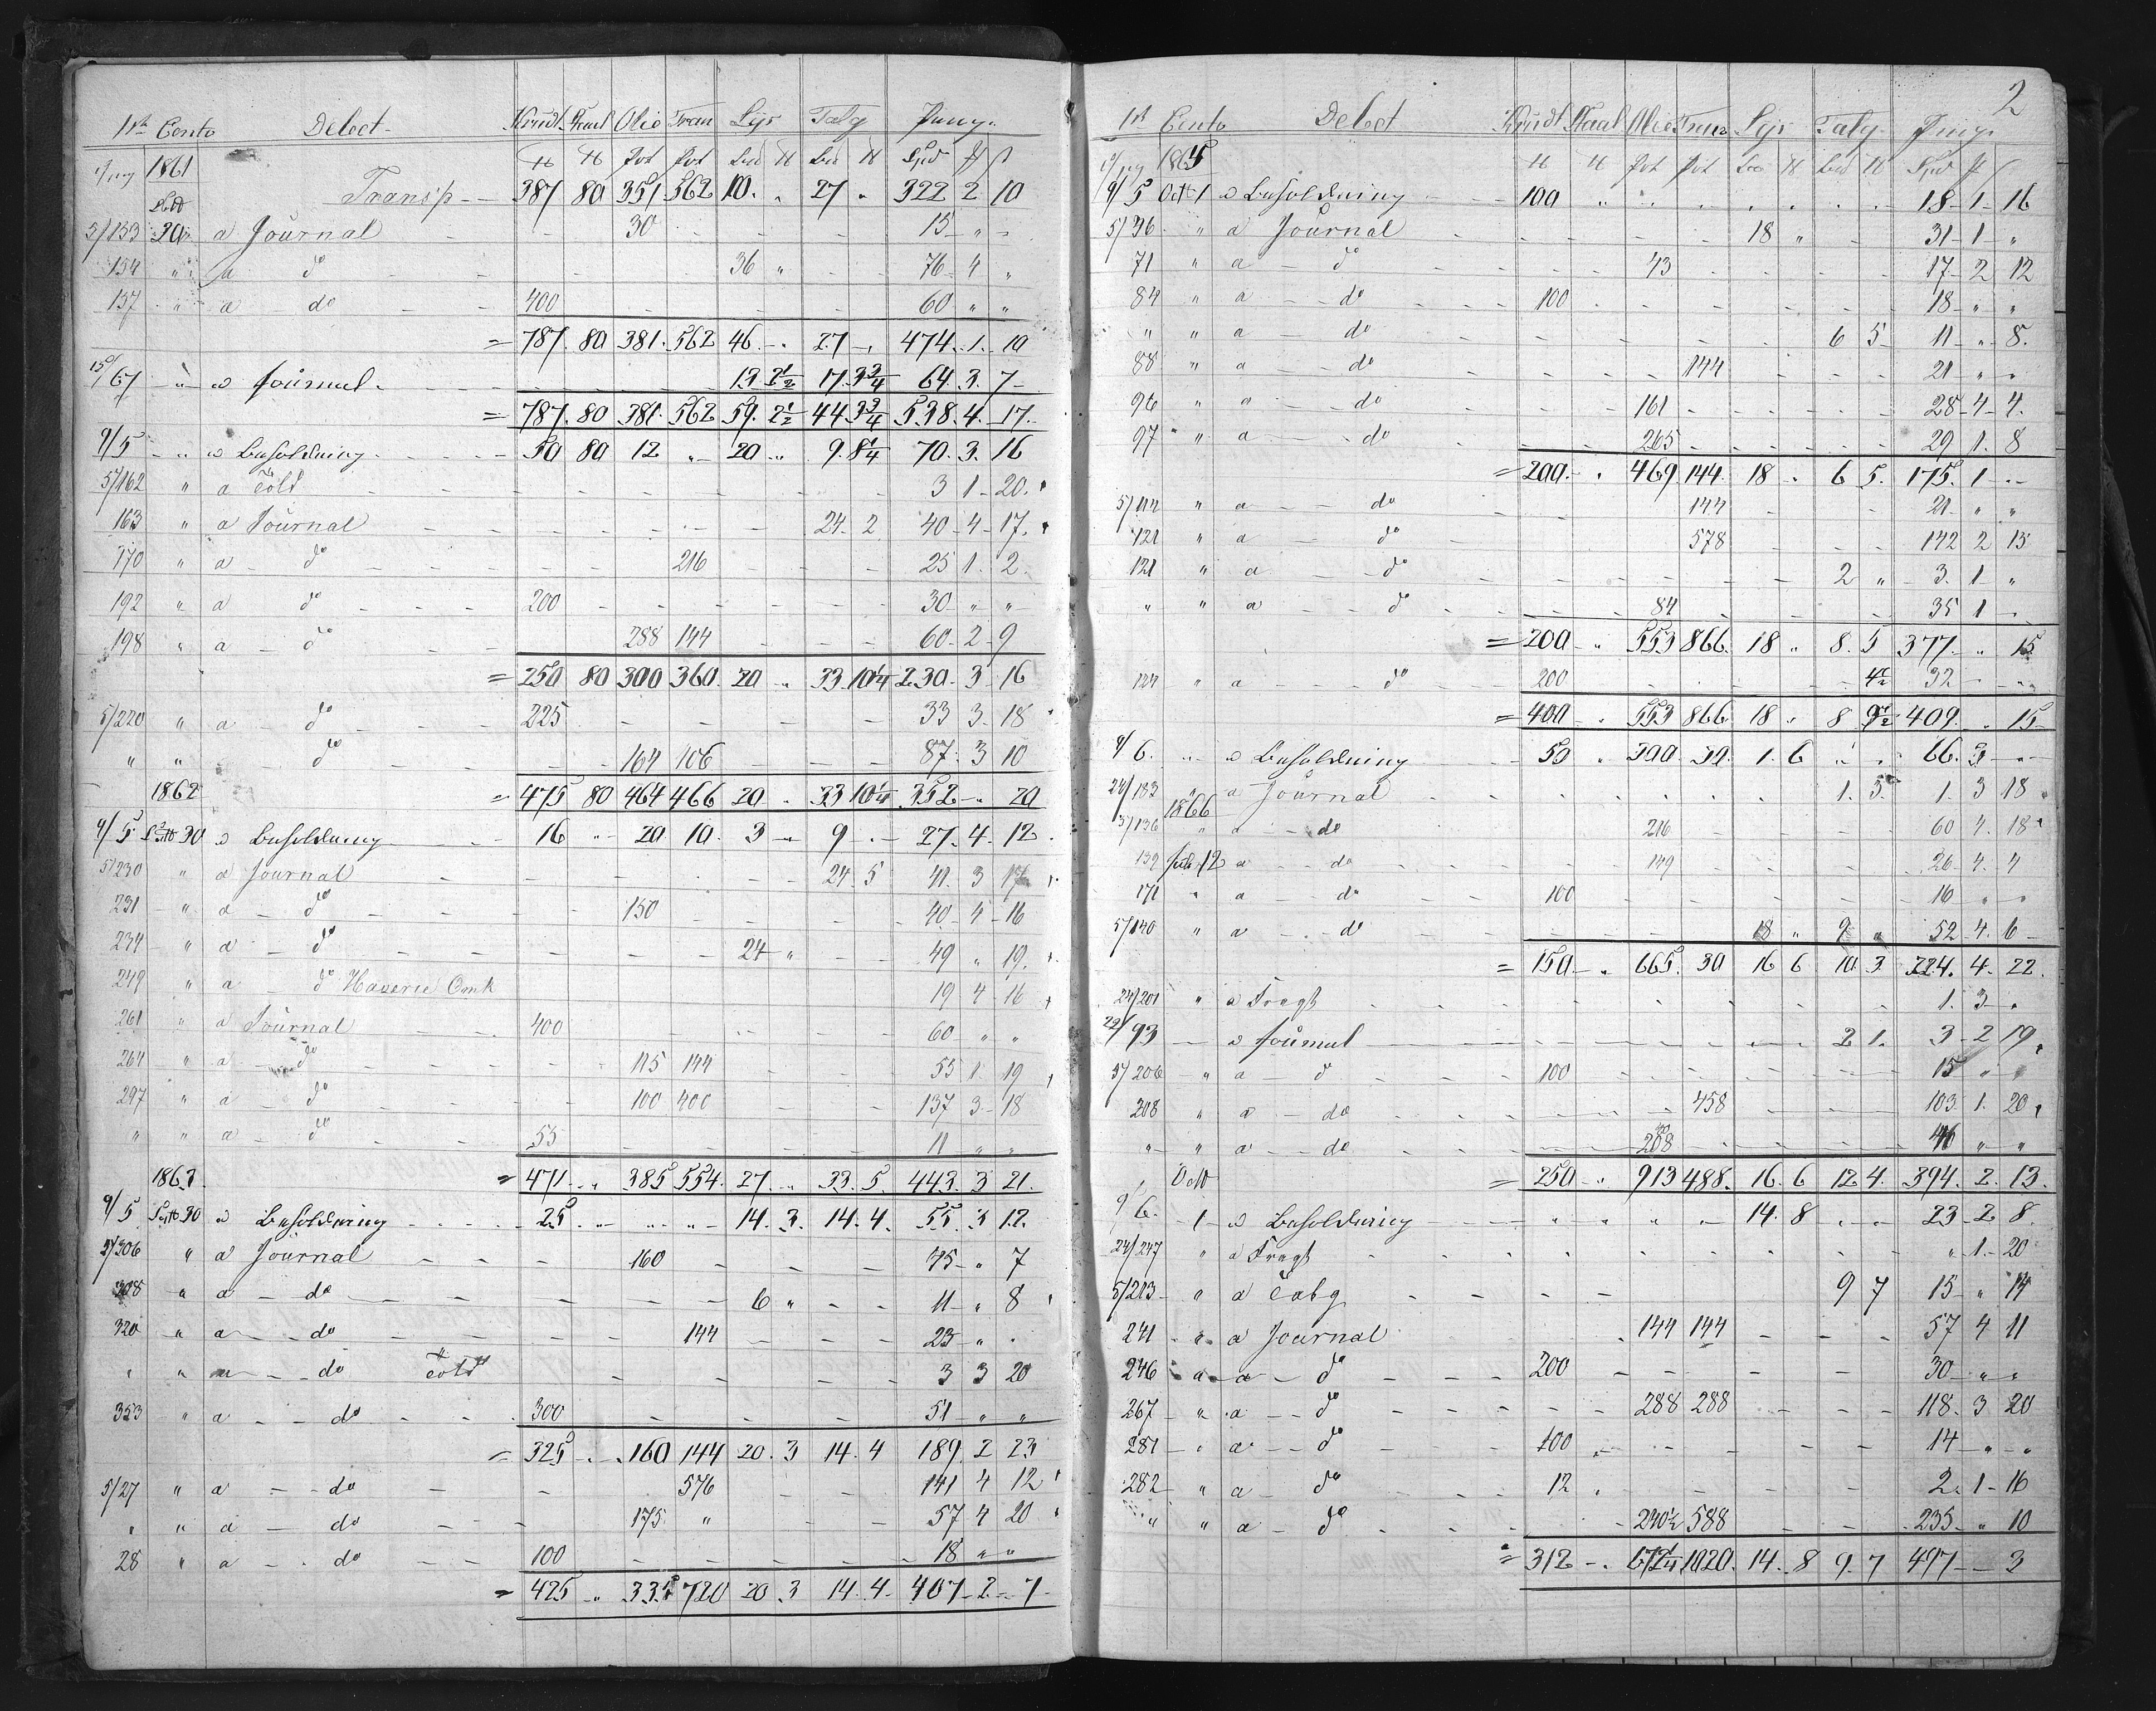 Conto Debet Krudt Staal Olie Tran Lys Talg Penge
1861 ℔ ℔ Pot Pot ℔ ℔ Spd
Transp 387 80 351 562 10 " 27 " 322 2 10
5/153 30 a Journal 30 15 "
154 " a do 36 " 76 4 "
157 " a do 400 60 " "
= 787 80 381 562 46 " 27 " 474 1 10
15/67 " a Journal 13 2½ 17 3¾ 64 3 7
= 787 80 381 562 59 2½ 44 3¾ 538 4 17
9/5 " a Beholdning 50 80 12 " 20 " 9 8¼ 70 3 16
5/162 " a Told 3 1 20
163 " a Journal 24 2 40 4 17
170 " a do 216 25 1 2
192 " a do 200 30 " "
198 " a do 288 144 60 2 9
= 250 80 300 360 20 " 33 10¼ 230 3 16
5/220 " a do 225 33 3 18
" " do 164 106 87 3 10
1862 = 475 80 464 466 20 " 33 10¼ 352 " 20
9/5 Sept 30 a Beholdning 16 " 20 10 3 " 9 " 27 4 12
5/230 " a Journal 24 5 41 3 17
231 " a do 150 40 4 16
234 " a do 24 " 49 " 19
249 " a do Haverie Omk 19 4 16
261 " a Journal 400 60 " "
264 " a do 115 144 55 1 19
297 " a do 100 400 137 3 18
" " a do 55 11 " "
1863 = 471 " 385 554 27 " 33 5 443 3 21
9/5 Sept 30 a Beholdning 25 " " " 14 3 14 4 55 3 12
5/306 " a Journal 160 45 " 7
308 " a do 6 " 11 " 8
320 " a do 144 23 "
" " a do Told 3 3 20
353 " a do 300 51 " "
= 325 " 160 144 20 3 14 4 189 2 23
5/27 " a do 576 141 4 12
" " a do 175 " 57 4 20
28 " a do 100 18 " "
= 425 " 335 720 20 3 14 4 407 2 7
2
Conto Debet Krudt Staal Olie Tran Lys Talg Penge
1865 ℔ ℔ Pot Pot ℔ ℔ Spd
9/5 Oct 1 a Beholdning 100 " " " " " " 18 1 16
5/36 " a Journal 18 " 31 1 "
71 " a do 43 17 2 12
84 " a do 100 18 " "
" " a do 6 5 11 " 8
88 " a do 144 21 " "
96 " a do 161 28 4 4
97 " a do 265 29 1 8
= 200 " 469 144 18 " 6 5 175 1 "
5/112 " a do 144 21 " "
121 " a do 578 142 2 15
121 " a do 2 " 3 1 "
" " a do 84 35 1
= 200 " 553 866 18 " 8 5 377 " 15
124 " a do 200 4½ 32
= 400 " 553 866 18 " 8 9½ 409 " 15
9/6 " a Beholdning 50 " 300 30 1 6 " " 66 3
24/133 " a Journal 1 5 1 3 18
1866
5/136 " a do 216 60 4 18
139 Feb 12 a do 149 26 4 4
171 " a do 100 16 " "
5/140 " a do 18 " 9 " 52 4 6
= 150 " 665 30 16 6 10 3 224 4 22
24/201 " a Fragt 1 3 "
22/93 a Journal 2 1 3 2 19
5/206 " a d 100 15 " "
208 " a do 458 103 1 20
" " a do 208 46 " "
Oct = 250 " 913 488 16 6 12 4 394 2 13
9/6 1 a Beholdning " " " " 14 8 " " 23 2 8
24/247 " a Fragt " 1 20
5/213 " a Talg 9 7 15 " 14
241 " a Journal 144 144 57 4 11
246 " a do 200 30 " "
267 " a do 288 288 118 3 20
281 " a do 100 14 " "
282 " a do 12 2 1 16
" " a do 240½ 588 235 " 10
= 312 " 672¼ 1020 14 8 9 7 497 " 3